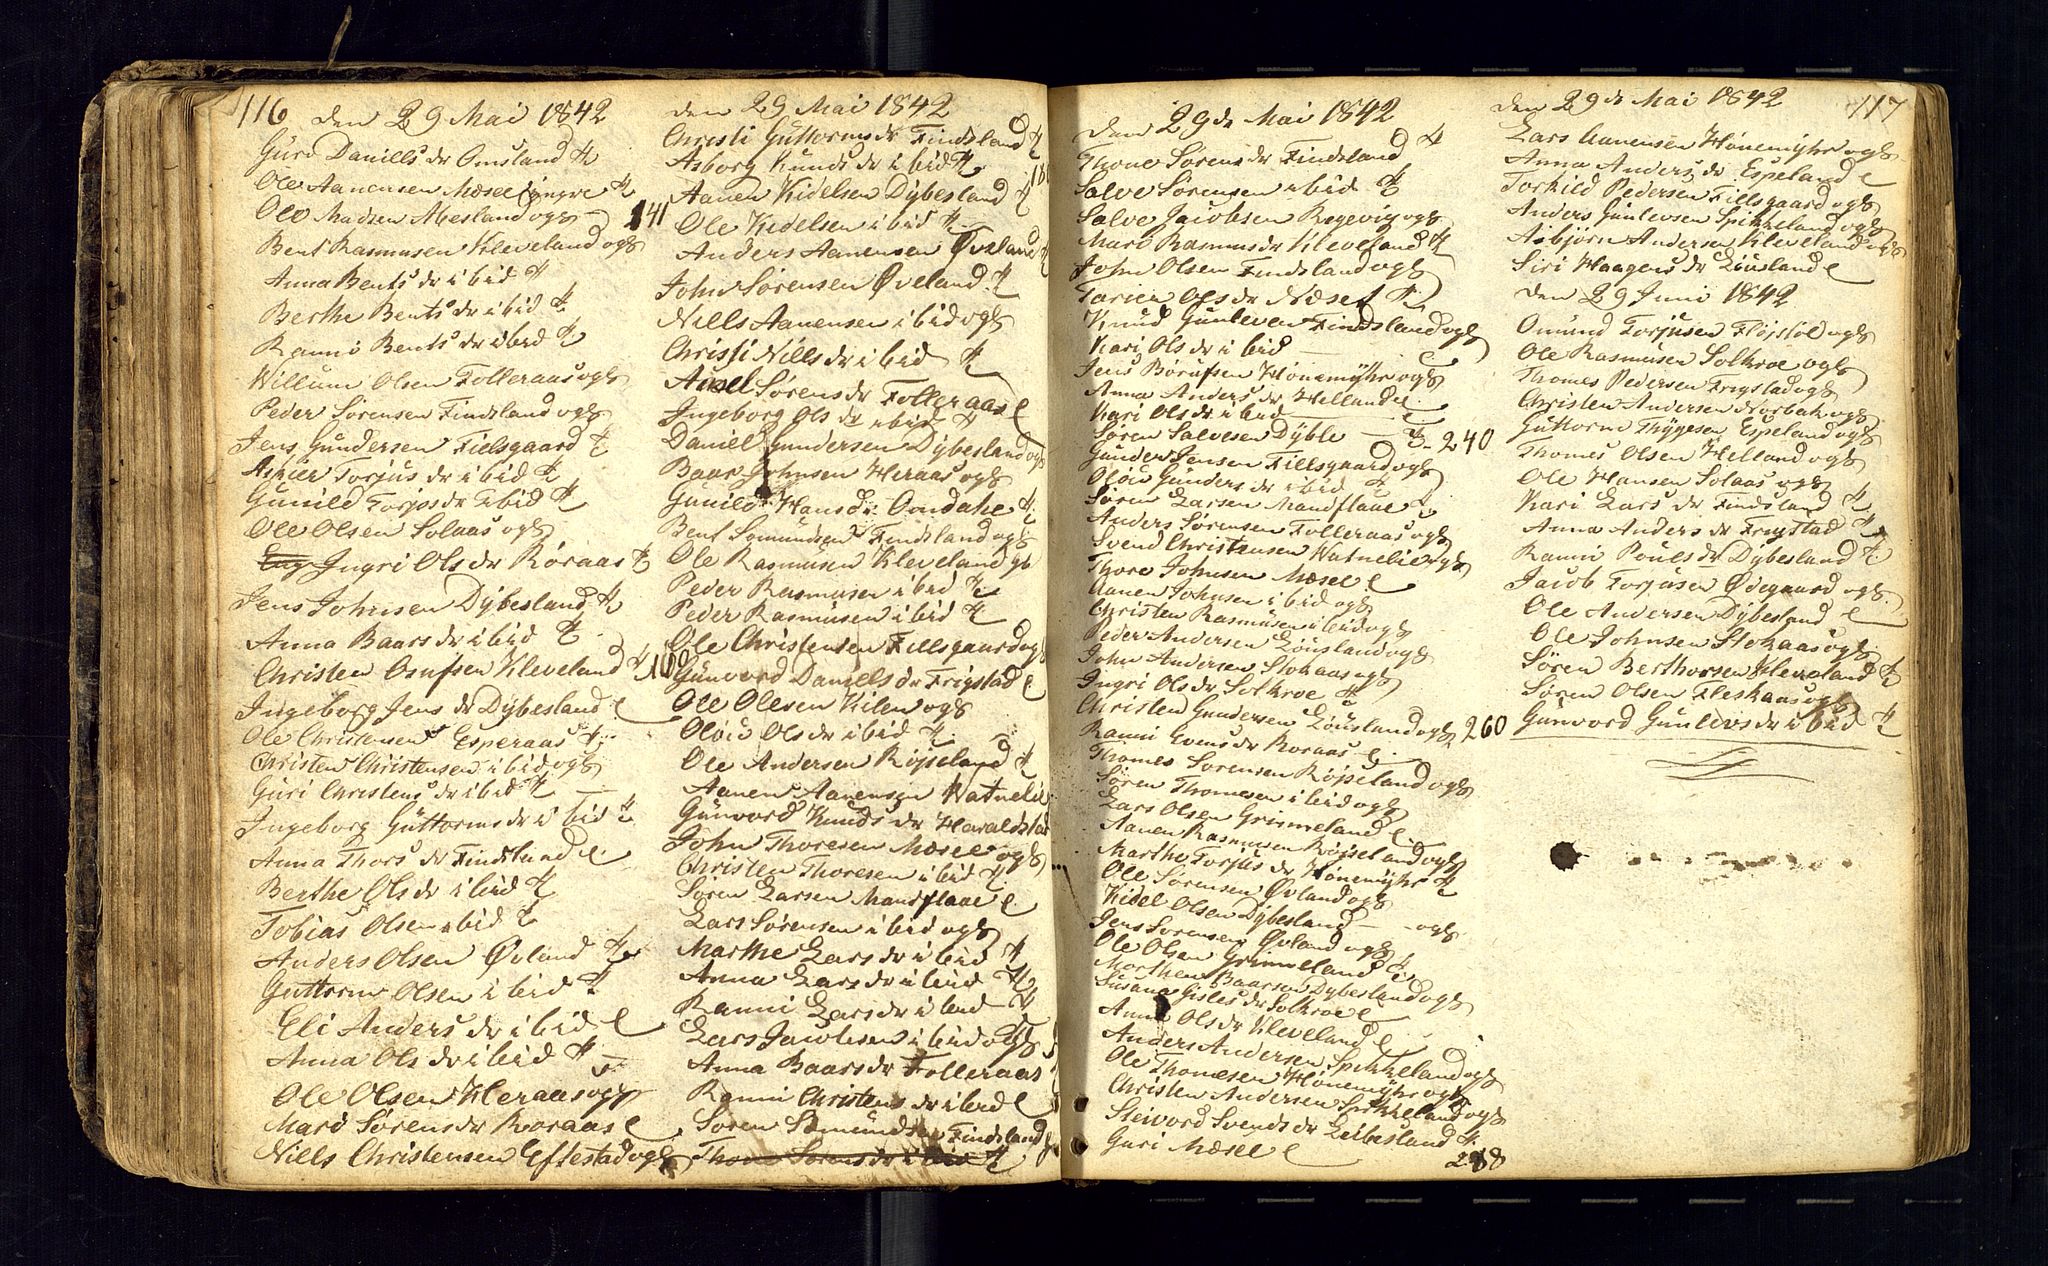 116 den 29 Mai 1842
Guri Daniels dr Omsland
Ole Aanensen Mæsel yngre
Ole Madsen Abesland ogh 141
Bent Rasmusen Kleveland ogh
Anna Bents dr ibid
Berthe Bents dr ibid
Ranni Bents dr ibid
Willum Olsen Folleraas ogh
Peder Sörensen Findsland ogh
Jens Gundersen Fielsgaard
Torjus dr ibid
Gunild Torjus dr ibid
Ole Olsen Solaas ogh
Ingri Ols dr Röraas
Jens Johnsen Dÿbesland
Anna Baars dr ibid
Christen Osufsen Kleveland 160
Ingeborg Jens dr Dÿbesland e
Ole Christensen Esperaas
Christen Christensen ibid ogh
Guri Christens dr ibid
Ingeborg Guttorms dr ibid
Anna Thors dr Findsland e
Berthe Ols dr ibid
Tobias Olsen ibid
Anders Olsen Øvland
Guttorm Olsen ibid
Eli Anders dr ibid e
Anna Ols dr ibid
Ole Olsen Heraas ogh
Mari Sörens dr Roraas e
Niels Christensen Eftestad ogh
den 29 Mai 1842
Christi Guttorms dr Findsland
Asborg Knuds dr ibid
Aanen Kidelsen Dÿbesland
Ole Kidelsen ibid
Anders Aanensen Øvland
John Sörensen Øveland
Nills Aanensen ibid ogh
Christi Nills dr ibid
Axel Sörens dr Folleraas e
Ingeborg Ols dr ibid
Daniel Gundersen Dÿbesland ogh
Baar Johnsen Heraas ogh
Gunild Hans dr Omdahl
Bent Somundsen Findsland ogh
Ole Rasmusen Kleveland gh
Peder Rasmusen ibid
Peder Rasmusen ibid
Ole Christensen Fielsgaard ogh
Gunvord Daniels dr Frigstad e
Ole Olesen Kilen ogh
Olöu Ols dr ibid
Ole Andersen Röjseland
Aanen Aanensen Watnelie
Gunvord Knuds dr Haraldstad
John Thoresen Mæsel ogh
Christen Thoresen ibid
Sören Larsen Mandflaae e
Lars Sörensen ibid ogh
Marthe Lars dr ibid
Anna Lars dr ibid
Ranni Lars dr ibid
Lars Jacobsen ibid ogh
Anna Baars dr Folleraas
Ranni Christens dr ibid e
Sören Somundsen Findsland
Thore Sörens dr ibid
den 29 de Mai 1842
Thone Sörens dr Findsland
Salve Sörensen ibid
Salve Jacobsen Røgevig ogh
Mari Rasmus dr Kleveland
John Olsen Findsland ogh
Tarier Ols dr Næset
Knud Gunleven Findsland ogh
Kari Ols dr ibid
Jens Börufsen Hönemÿhr ogh
Anna Anders dr Helland e
Kari Ols dr ibid
Sören Salvesen Dÿble 240
Gunder Jensen Fillsgaard ogh
Olöu Gunders dr ibid
Sören Larsen Mandflaae
Anders Sörensen Folleraas ogh
Svend Christensen Watnelie ogh
Thore Johnsen Mæsel e
Aanen Johnsen ibid ogh
Christen Rasmusen ibid ogh
Peder Andersen Löusland ogh
John Andersen Stokaas ogh
Ingri Ols dr Solkroe
Christen Gundersen Löusland ogh 260
Ranni Evens dr Roraas e
Thomes Sorensen Röjseland ogh
Sören Thomesen ibid ogh
Lars Olsen Grimeland e
Aanen Rasmusen Röjseland ogh
Marthe Torjus dr Hönemÿhr
Ole Sörensen Øvland ogh
Kidel Olsen Dÿbesland ogh
Jens Sorensen Øvland ogh
Ole Olsen Grimeland
Morthen Baarsen Dÿbesland ogh
Susana Gisles dr Solkroe e
Anna Ols dr Kleveland e
Anders Andersen Spikkeland ogh
Ole Thomesen Hönemÿhr ogh
Christen Andersen Spikkeland ogh
Steivord Svends dr Leibesland
Guri Mæsel e
288
den 29 de Mai 1842 117
Lars Aanensen Hönemÿhr ogh
Anna Anders dr Espeland e
Torkild Pedersen Fillsgaard ogh
Anders Gunlevsen Spikkeland ogh
Asbjörn Andersen Kleveland ogh
Siri Haagens dr Löusland e
den 29 Juni 1842
Omund Torjusen Flöjstöl ogh
Ole Rasmusen Solkroe ogh
Thomes Pedersen Frigstad ogh
Christen Andersen Norbak ogh
Guttorm Thÿgesen Espeland ogh
Thomes Olsen Helland ogh
Ole Hansen Solaas ogh
Kari Lars dr Findsland
Anna Anders dr Frigstad
Ranni Pouls dr Dÿbesland
Jacob Torjusen Ødegaard ogh
Ole Andersen Dÿbesland e
Ole Johnsen Stokaas ogh
Sören Berthorsen Kleveland
Sören Olsen Fleskaas ogh
Gunvord Gunlevs dr ibid